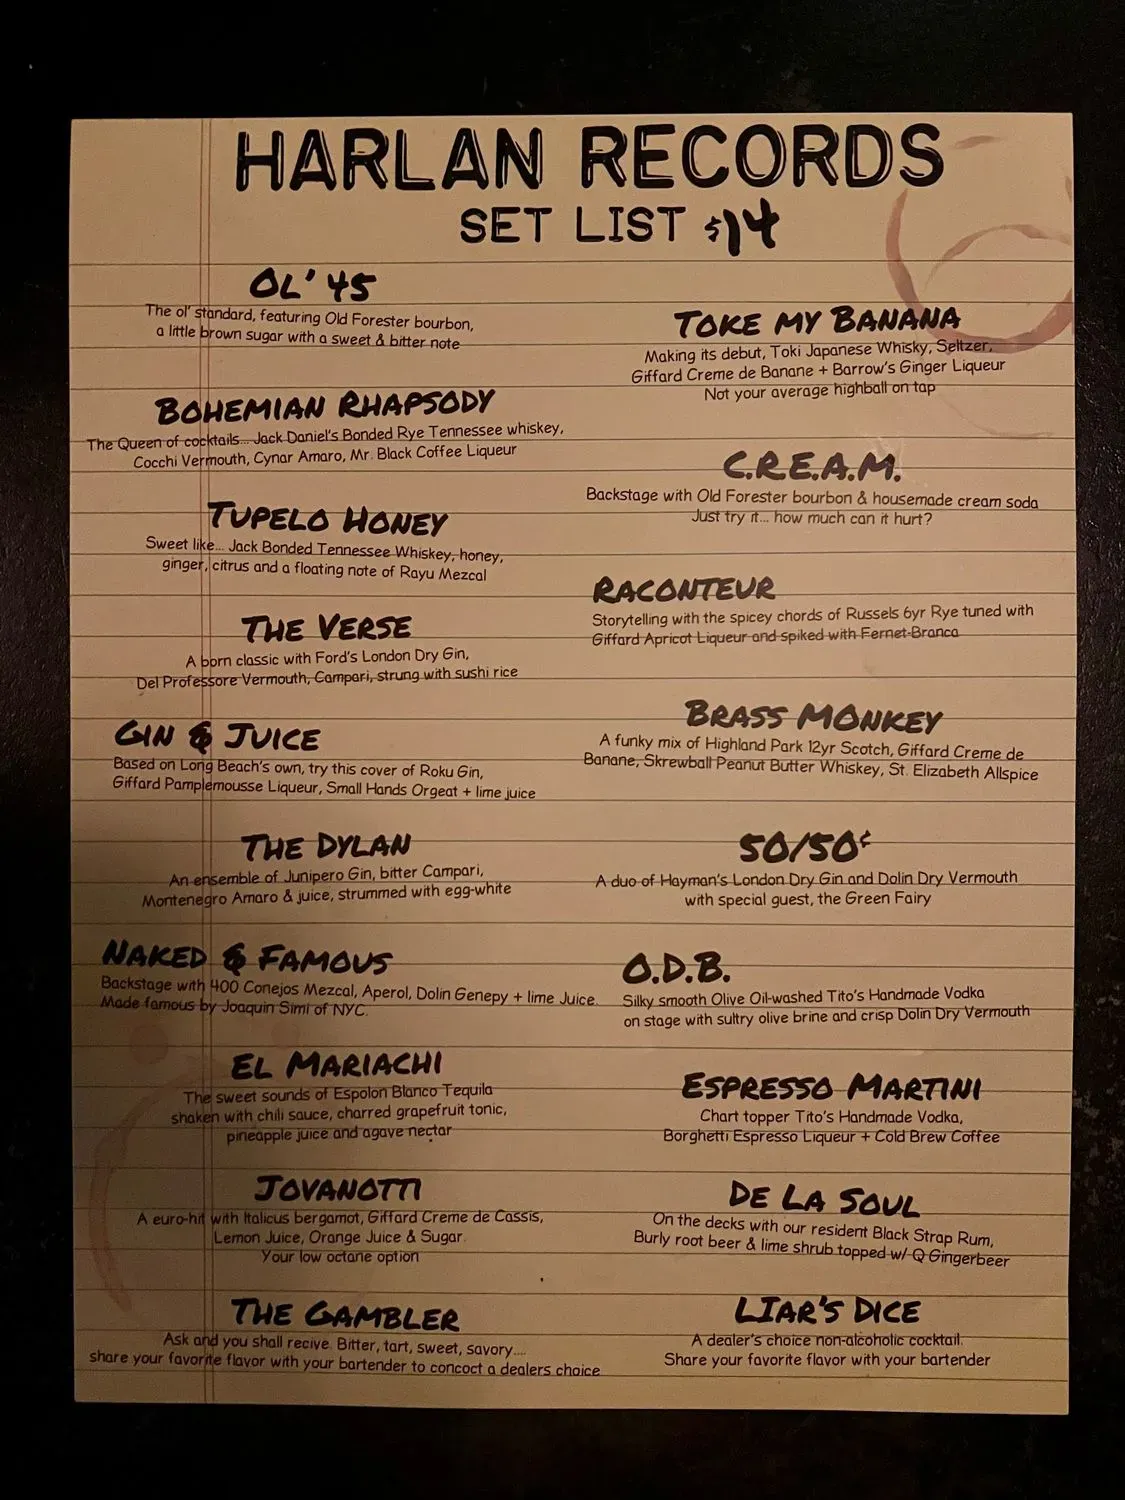 HARLAN RECORDS
SET LIST $14
OL' 45
The ol' standard, featuring Old Forester bourbon,
a little brown sugar with a sweet & bitter note
BOHEMIAN RHAPSODY
The Queen of cocktails... Jack Daniel's Bonded Rye Tennessee whiskey,
Cocchi Vermouth, Cynar Amaro, Mr. Black Coffee Liqueur
TUPELO HONEY
Sweet like... Jack Bonded Tennessee Whiskey, honey,
ginger, citrus and a floating note of Rayu Mezcal
THE VERSE
A born classic with Ford's London Dry Gin,
Del Professore Vermouth, Campari, strung with sushi rice
GIN & JUICE
Based on Long Beach's own, try this cover of Roku Gin,
Giffard Pamplemousse Liqueur, Small Hands Orgeat + lime juice
THE DYLAN
An ensemble of Junipero Gin, bitter Campari,
Montenegro Amaro & juice, strummed with egg-white
NAKED & FAMOUS
Backstage with 400 Conejos Mezcal, Aperol, Dolin Genepy + lime Juice.
Made famous by Joaquin Simi of NYC.
EL MARIACHI
The sweet sounds of Espolon Blanco Tequila
shaken with chili sauce, charred grapefruit tonic,
pineapple juice and agave nectar
JOVANOTTI
A euro-hit with Italicus bergamot, Giffard Creme de Cassis,
Lemon Juice, Orange Juice & Sugar.
Your low octane option
THE GAMBLER
Ask and you shall recive. Bitter, tart, sweet, savory....
share your favorite flavor with your bartender to concoct a dealers choice
TOKE MY BANANA
Making its debut, Toki Japanese Whisky, Seltzer,
Giffard Creme de Banane + Barrow's Ginger Liqueur
Not your average highball on tap
C.R.E.A.M.
Backstage with Old Forester bourbon & housemade cream soda
Just try it... how much can it hurt?
RACONTEUR
Storytelling with the spicey chords of Russels 6yr Rye tuned with
Giffard Apricot Liqueur and spiked with Fernet-Branca
BRASS MONKEY
A funky mix of Highland Park 12yr Scotch, Giffard Creme de
Banane, Skrewball Peanut Butter Whiskey, St. Elizabeth Allspice
50/50¢
A duo of Hayman's London Dry Gin and Dolin Dry Vermouth
with special guest, the Green Fairy
O.D.B.
Silky smooth Olive Oil-washed Tito's Handmade Vodka
on stage with sultry olive brine and crisp Dolin Dry Vermouth
ESPRESSO MARTINI
Chart topper Tito's Handmade Vodka,
Borghetti Espresso Liqueur + Cold Brew Coffee
DE LA SOUL
On the decks with our resident Black Strap Rum,
Burly root beer & lime shrub topped w/ Q Gingerbeer
LIAR'S DICE
A dealer's choice non-alcoholic cocktail.
Share your favorite flavor with your bartender